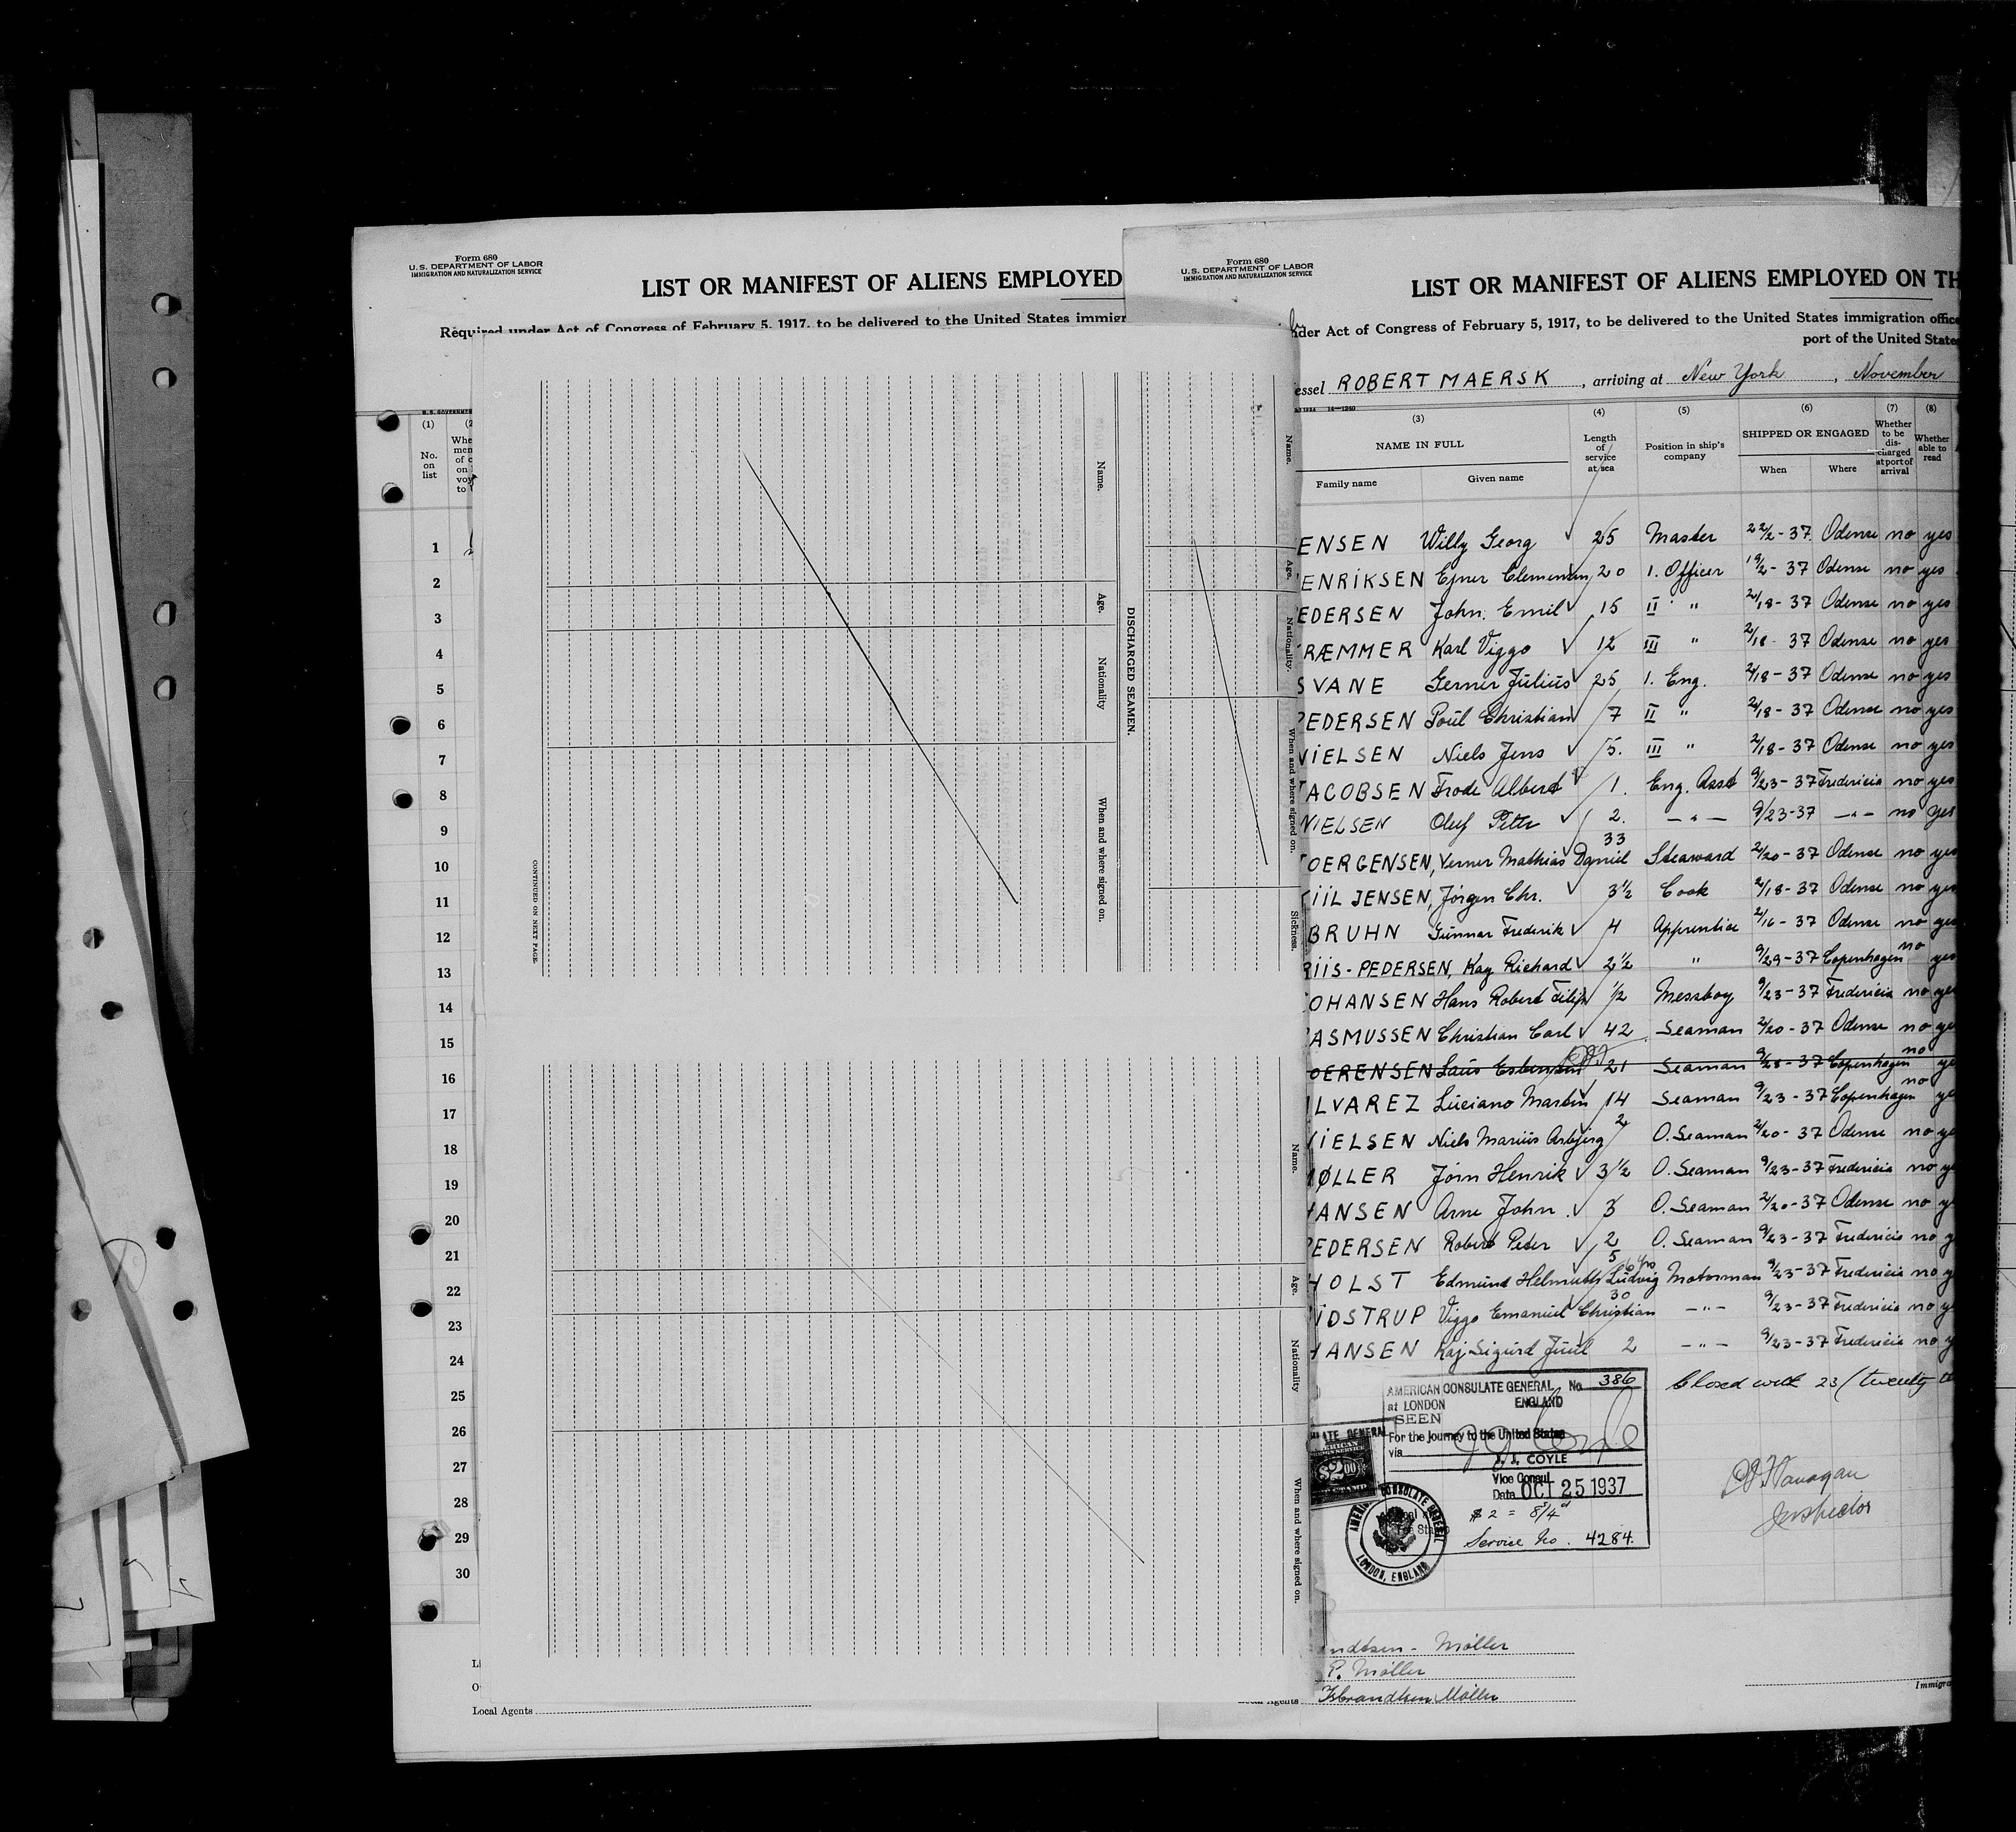 Form 680
U.S. DEPARTMENT OF LABOR
IMMIGRATION AND NATURALIZATION SERVICE
LIST OR MANIFEST OF ALIENS EMPLOYED
Required under Act of Congress of February 5, 1917, to be delivered to the United States immigr
(1)
No. on list
1
2
3
4
5
6
7
8
9
10
11
12
13
14
15
16
17
18
19
20
21
22
23
24
25
26
27
28
29
30
Local Agents
Name.
Age.
Nationality
When and where signed on.
DISCHARGED SEAMEN.
CONTINUED ON NEXT PAGE.
Name.
Age.
Nationality.
When and where signed on.
Sickness.
Name.
Age.
Nationality
When and where signed on.
Form 680
U.S. DEPARTMENT OF LABOR
IMMIGRATION AND NATURALIZATION SERVICE
LIST OR MANIFEST OF ALIENS EMPLOYED ON TH
der Act of Congress of February 5, 1917, to be delivered to the United States immigration office
port of the United States
essel ROBERT MAERSK, arriving at New York, November
14—1240
(3) (4) (5) (6) (7) (8)
NAME IN FULL Length of service at sea Position in ship's company SHIPPED OR ENGAGED Whether to be discharged at port of arrival Whether able to read
Family name Given name When Where
ENSEN Willy Georg 25 Master 22/2-37. Odense no yes
ENRIKSEN Ejner 20 1. Officer 19/2-37 Odense no yes
EDERSEN John. Emil 15 II " 2/18-37 Odense no yes
RÆMMER Karl Viggo 12 III " 2/18-37 Odense no yes
SVANE Gerner Julius 25 1. Eng. 2/18-37 Odense no yes
PEDERSEN Poul Christian 7 II " 2/18-37 Odense no yes
NIELSEN Niels Jens 5. III " 2/18-37 Odense no yes
JACOBSEN Frode Albert 1. Eng. Asst 9/23-37 Fredericia no yes
NIELSEN Oluf Peter 2. —"— 9/23-37 —"— no yes
OERGENSEN, Verner Mathias Daniel 33 Steaward 2/20-37 Odense no yes
IIL JENSEN, Jörgen Chr. 3½ Cook 2/18-37 Odense no yes
BRUHN Gunnar Frederik 4 Apprentice 2/16-37 Odense no yes
RIIS-PEDERSEN, Kay Richard 2½ " 9/29-37 Copenhagen no yes
OHANSEN Hans Robert Filip ½ Messboy 9/23-37 Fredericia no yes
ASMUSSEN Christian Carl 42 Seaman 2/20-37 Odense no ye
OERENSEN Laus 21 Seaman 9/28-37 Copenhagen no ye
LVAREZ Luciano Martin 14 Seaman 9/23-37 Copenhagen no ye
NIELSEN Niels Marius Asbjörg 2 O. Seaman 2/20-37 Odense no ye
ØLLER Jörn Henrik 3½ O. Seaman 9/23-37 Fredericia no ye
HANSEN Arne John. 3 O. Seaman 2/20-37 Odense no y
PEDERSEN Robert Peter 2 O. Seaman 9/23-37 Fredericia no y
HOLST Edmund Helmuth Ludvig 5 Motorman 9/23-37 Fredericia no y
IDSTRUP Viggo Emanuel Christian 30 —"— 9/23-37 Fredericia no y
HANSEN Kaj Sigurd Juul 2 —"— 9/23-37 Fredericia no y
Closed with 23 (twenty th
AMERICAN CONSULATE GENERAL No. 386
at LONDON ENGLAND
SEEN
For the journey to the United States
via
J. J. COYLE
Vice Consul
Date OCT 25 1937
$2 = 8/4d
Service No. 4284.
$2.00
AMERICAN CONSULATE GENERAL
LONDON, ENGLAND
Flanagan
Inspector
ndtsen - Möller
P. Möller
Isbrandtsen Möller
Immigra